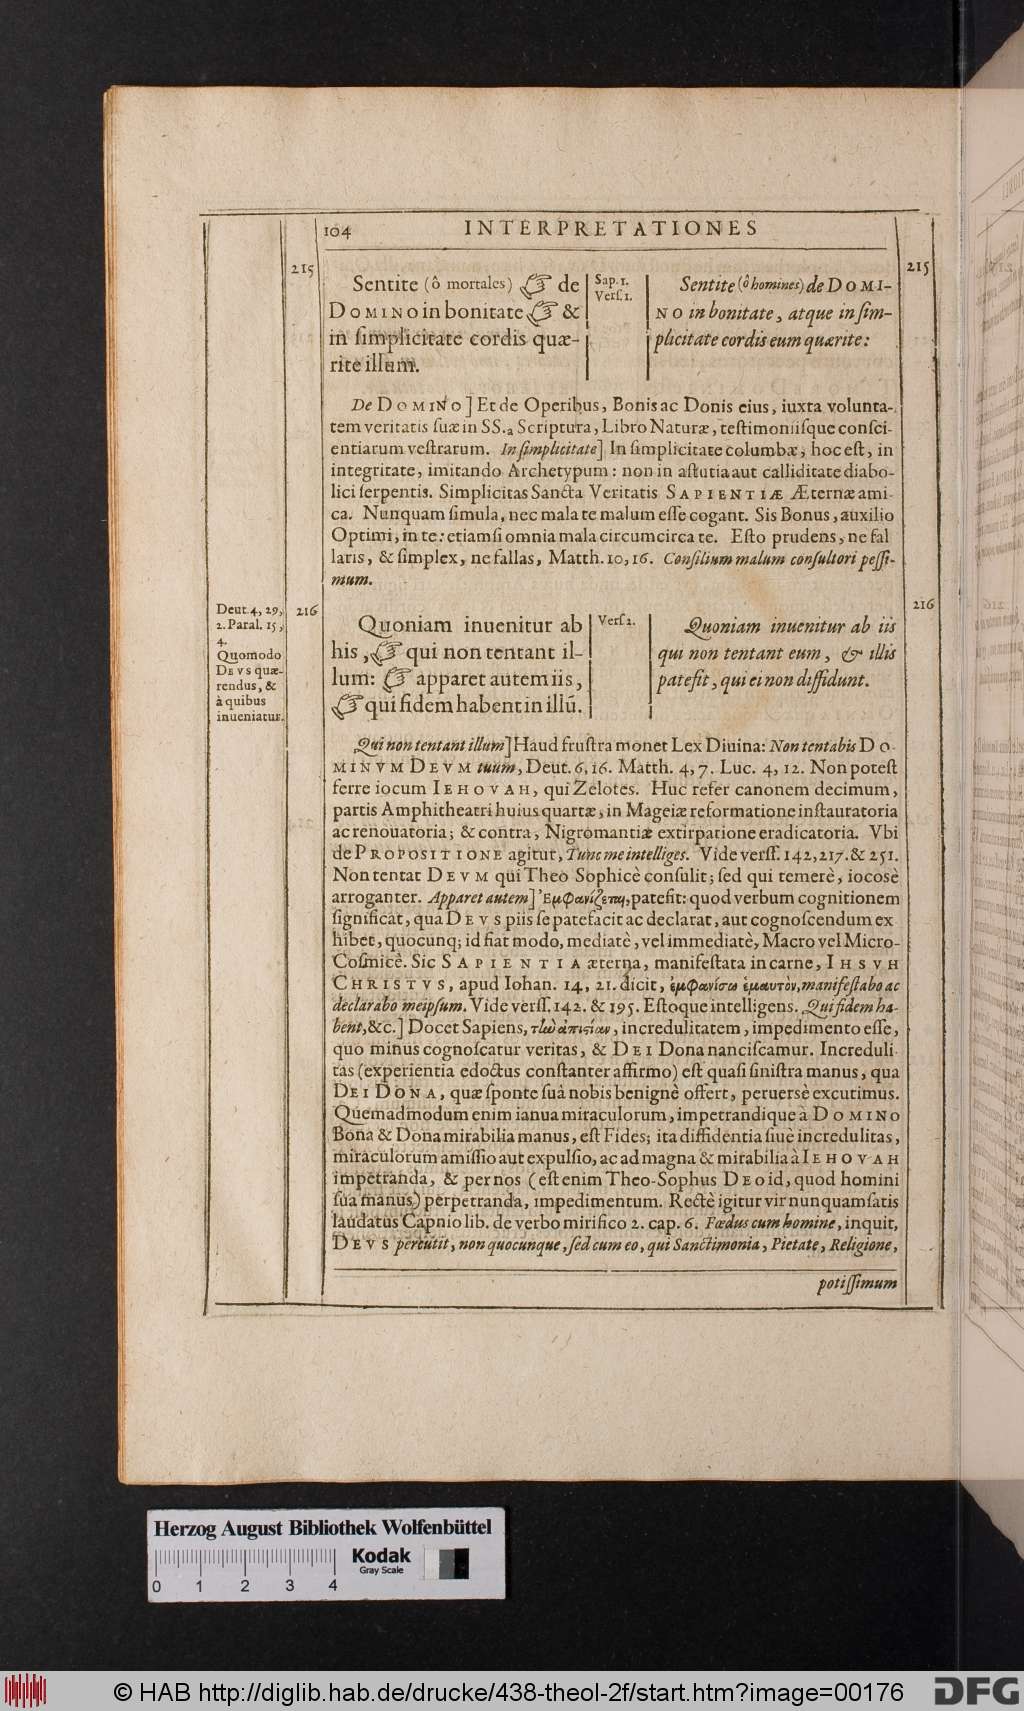 104 INTERPRETATIONES
215
Sentite (ô mortales) ☞ de
DOMINO in bonitate ☞ &
in ſimplicitate cordis quæ-
rite illum.
Sap. 1.
Verſ 1.
215
Sentite (ô homines) de DOMI-
NO in bonitate, atque in ſim-
plicitate cordis eum quærite:
De DOMINO] Et de Operibus, Bonis ac Donis eius, iuxta volunta-
tem veritatis ſuæ in SS.a Scriptura, Libro Naturæ, teſtimoniiſque conſci-
entiarum veſtrarum. In ſimplicitate] In ſimplicitate columbæ; hoc eſt, in
integritate, imitando Archetypum: non in aſtutia aut calliditate diabo-
lici ſerpentis. Simplicitas Sancta Veritatis SAPIENTIÆ Æternæ ami-
ca. Nunquam ſimula, nec mala te malum eſſe cogant. Sis Bonus, auxilio
Optimi, in te: etiamſi omnia mala circumcirca te. Eſto prudens, ne fal
laris, & ſimplex, ne fallas, Matth. 10, 16. Conſilium malum conſultori peſſi-
mum.
Deut. 4, 29,
2. Paral. 15,
4.
Quomodo
DEVS quæ-
rendus, &
à quibus
inueniatur.
216
Quoniam inuenitur ab
his, ☞ qui non tentant il-
lum: ☞ apparet autem iis,
☞ qui fidem habent in illū.
Verſ 2.
216
Quoniam inuenitur ab iis
qui non tentant eum, & illis
patefit, qui ei non diffidunt.
Qui non tentant illum] Haud fruſtra monet Lex Diuina: Non tentabis DO-
MINVM DEVM tuum, Deut. 6, 16. Matth. 4, 7. Luc. 4, 12. Non poteſt
ferre iocum IEHOVAH, qui Zelotes. Huc refer canonem decimum,
partis Amphitheatri huius quartæ, in Mageiæ reformatione inſtauratoria
ac renouatoria; & contra, Nigromantiæ extirpatione eradicatoria. Vbi
de PROPOSITIONE agitur, Tunc me intelliges. Vide verſſ. 142, 217. & 251.
Non tentat DEVM qui Theo Sophicè conſulit; ſed qui temerè, iocosè
arroganter. Apparet autem] Ἐμφανίζεται, patefit: quod verbum cognitionem
ſignificat, qua DEVS piis ſe patefacit ac declarat, aut cognoſcendum ex
hibet, quocunq; id fiat modo, mediatè, vel immediatè, Macro vel Micro-
Coſmicè. Sic SAPIENTIA æterna, manifeſtata in carne, IHSVH
CHRISTVS, apud Iohan. 14, 21. dicit, ἐμφανίσω ἐμαυτὸν, manifeſtabo ac
declarabo meipſum. Vide verſſ. 142. & 195. Eſtoque intelligens. Qui fidem ha-
bent, &c.] Docet Sapiens, τὴν ἀπιστίαν, incredulitatem, impedimento eſſe,
quo minus cognoſcatur veritas, & DEI Dona nanciſcamur. Increduli-
tas (experientia edoctus conſtanter affirmo) eſt quaſi ſiniſtra manus, qua
DEI DONA, quæ ſponte ſuâ nobis benignè offert, peruersè excutimus.
Quemadmodum enim ianua miraculorum, impetrandique à DOMINO
Bona & Dona mirabilia manus, eſt Fides; ita diffidentia ſiuè incredulitas,
miraculorum amiſſio aut expulſio, ac ad magna & mirabilia à IEHOVAH
impetranda, & per nos (eſt enim Theo-Sophus DEO id, quod homini
ſua manus) perpetranda, impedimentum. Rectè igitur vir nunquam ſatis
laudatus Capnio lib. de verbo mirifico 2. cap. 6. Fœdus cum homine, inquit,
DEVS percutit, non quocunque, ſed cum eo, qui Sanctimonia, Pietate, Religione,
potiſſimum
Herzog August Bibliothek Wolfenbüttel
0 1 2 3 4
Kodak
Gray Scale
© HAB http://diglib.hab.de/drucke/438-theol-2f/start.htm?image=00176
DFG